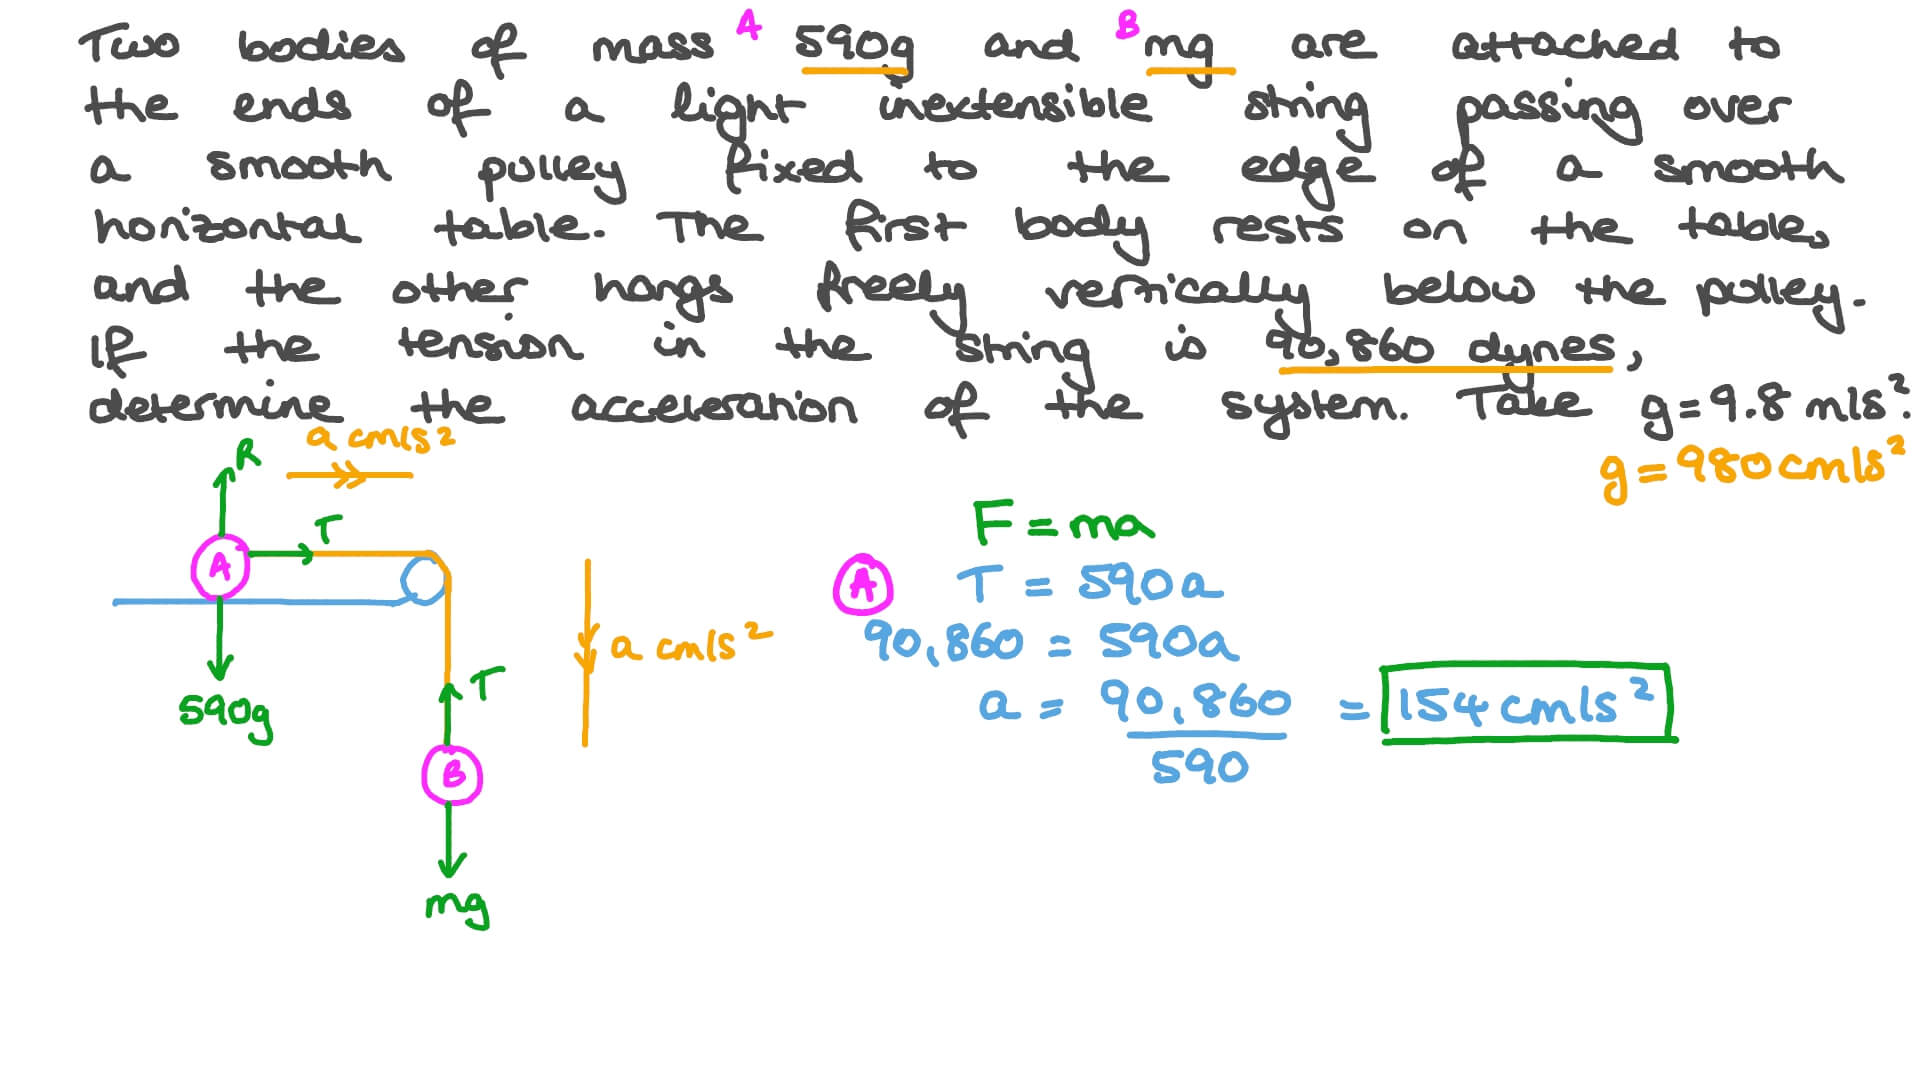 Two bodies of mass A 590g and B mg are attached to
the ends of a light inextensible string passing over
a smooth pulley fixed to the edge of a smooth
horizontal table. The first body rests on the table,
and the other hangs freely vertically below the pulley.
If the tension in the string is 90,860 dynes,
determine the acceleration of the system. Take g=9.8 m/s².
g=980cm/s²
a cm/s²
R
T
A
590g
T
B
mg
a cm/s²
F=ma
A T = 590a
90,860 = 590a
a = 90,860/590 = 154cm/s²